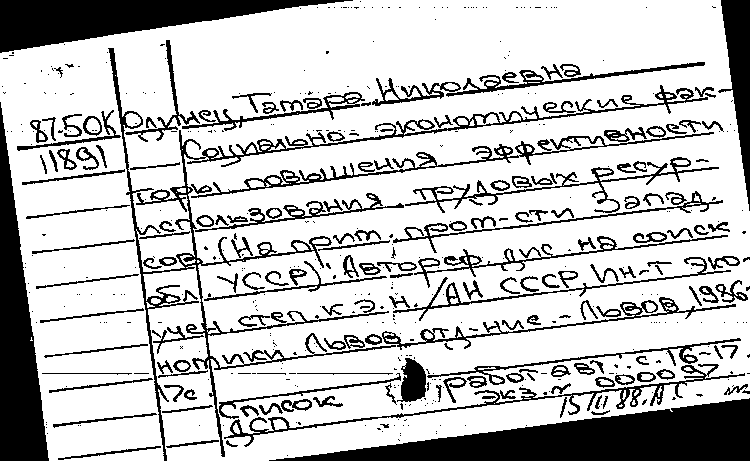 87-50К Олинец, Тамара Николаевна.
11891 Социально-экономические фак-
торы повышения эффективности
использования трудовых ресур-
сов: (На прим. пром-сти Запад.
обл. УССР): Автореф. дис. на соиск.
учен. степ. к.э.н. / АН СССР, Ин-т эко-
номики. Львов. отд-ние. - Львов, 1986-
17с.
Список работ авт.: с. 16-17.
ДСП. Экз. № 000097.
15 III 88. А.С.